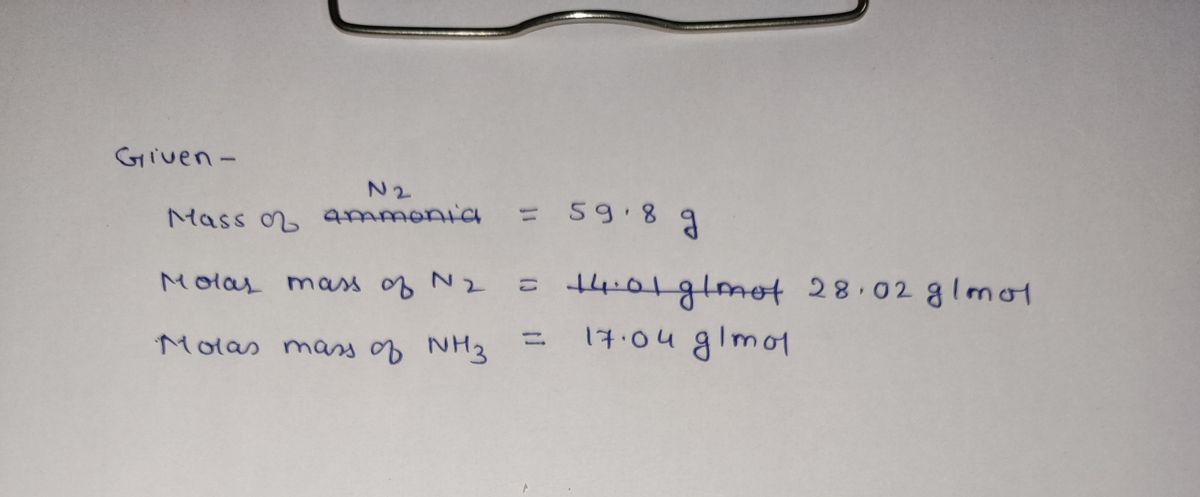 Given -
N2
Mass of ammonia = 59.8 g
Molar mass of N2 = 14.01 g/mol 28.02 g/mol
Molar mass of NH3 = 17.04 g/mol